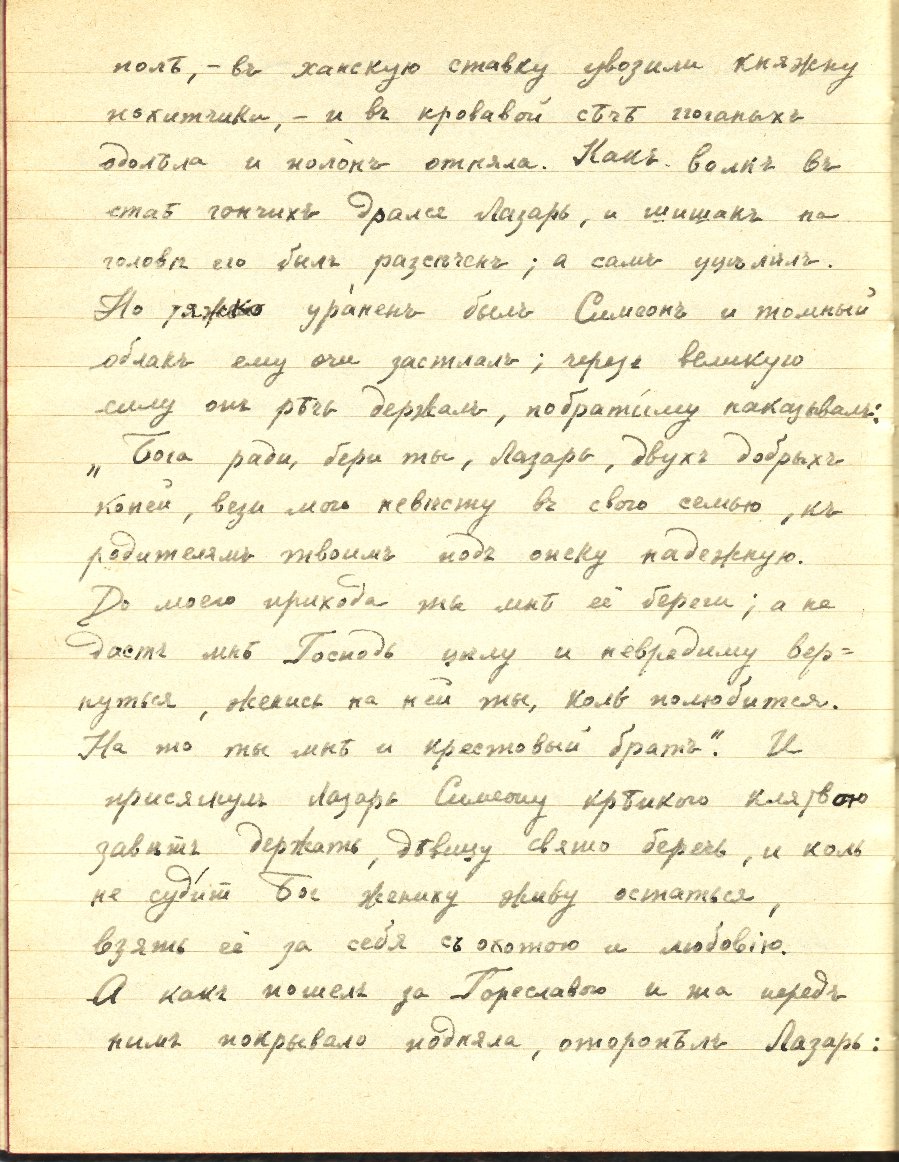 полѣ, – въ ханскую ставку увозили княжну
похитчики, – и въ кровавой сѣчѣ поганыхъ
одолѣла и полонъ отняла. Какъ волкъ въ
стаѣ гончихъ дрался Лазарь, и шишакъ на
головѣ его былъ разсѣченъ; а самъ уцѣлѣлъ.
Но тяжко ура́ненъ былъ Симеонъ и томный
облакъ ему очи застлалъ; черезъ великую
силу онъ рѣчь держалъ, побрати́му наказывалъ:
„Бога ради, бери ты, Лазарь, двухъ добрыхъ
коней, вези мою невѣсту въ свою семью, къ
родителямъ твоимъ подъ опеку надежную.
До моего прихода ты мнѣ её береги; а не
дастъ мнѣ Господь цѣлу и невредиму вер=
нуться, женись на ней ты, коль полюбится.
На то ты мнѣ и крестовый братъ“. И
присягнулъ Лазарь Симеону крѣпкою клятвою
завѣтъ держать, дѣвицу свято беречь, и коль
не суди́т Бог жениху живу остаться,
взять её за себя съ охотою и любовію.
А какъ пошелъ за Гореславою и та передъ
нимъ покрывало подняла, оторопѣлъ Лазарь: